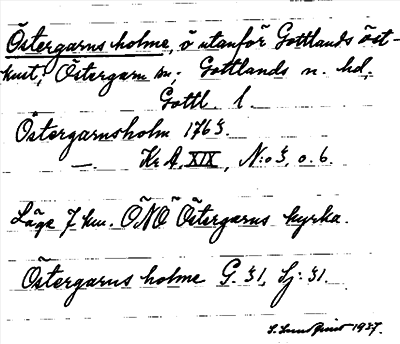 Östergarns holme, ö utanför Gottlands öst-
kust, Östergarn sn; Gottlands n. hd.
Gottl. l.
Östergarnsholm 1763.
—. Kr A, XIX, N:o 3, o. 6.
Läge 7 km. ÖNÖ Östergarns kyrka.
Östergarns holme G. 31, Sj: 31.
1937.